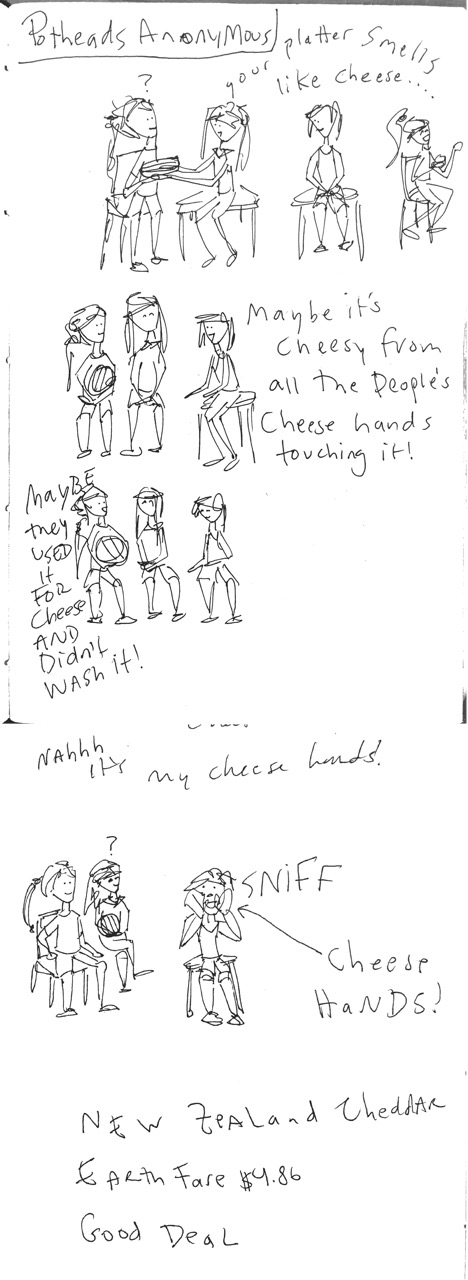 Potheads Anonymous
?
your platter smells
like cheese....
Maybe it's
cheesy from
all the people's
cheese hands
touching it!
MAYBE
they
USED
it
FOR
Cheese
AND
Didn't
WASH it!
NAhhh
it's my cheese hands!
?
SNIFF
Cheese
HANDS!
NEW ZEALand CheddAR
EARth Fare $4.86
Good DeaL